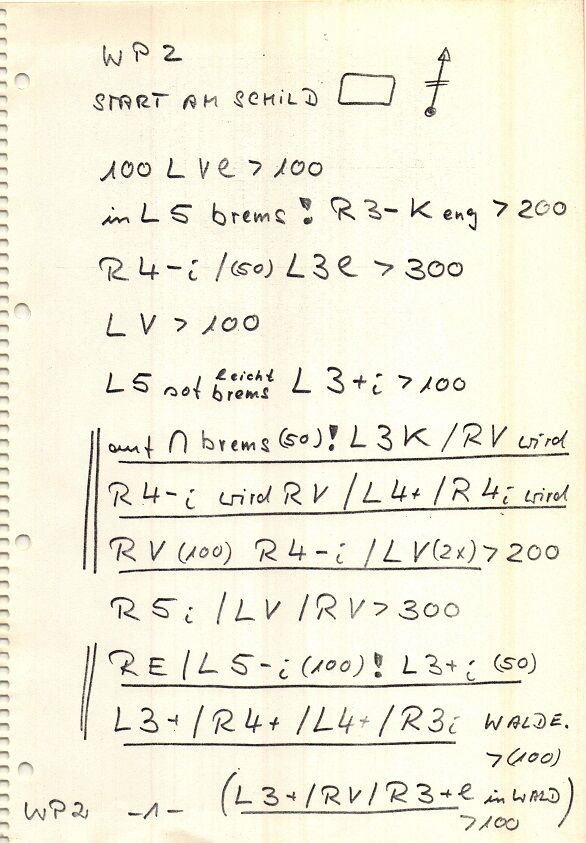 WP2
START AM SCHILD
100 L Ve > 100
in L 5 brems ! R 3 - K eng > 200
R 4 - i / (50) L 3 e > 300
L V > 100
L 5 sot leicht brems L 3 + i > 100
auf ∩ brems (50) ! L 3 K / RV wird
R 4 - i wird RV / L 4 + / R 4 i wird
R V (100) R 4 - i / L V (2x) > 200
R 5 i / L V / R V > 300
R E / L 5 - i (100) ! L 3 + i (50)
L 3 + / R 4 + / L 4 + / R 3 i WALDE.
> (100)
(L 3 + / R V / R 3 + e in WALD)
WP2 -1- > 100